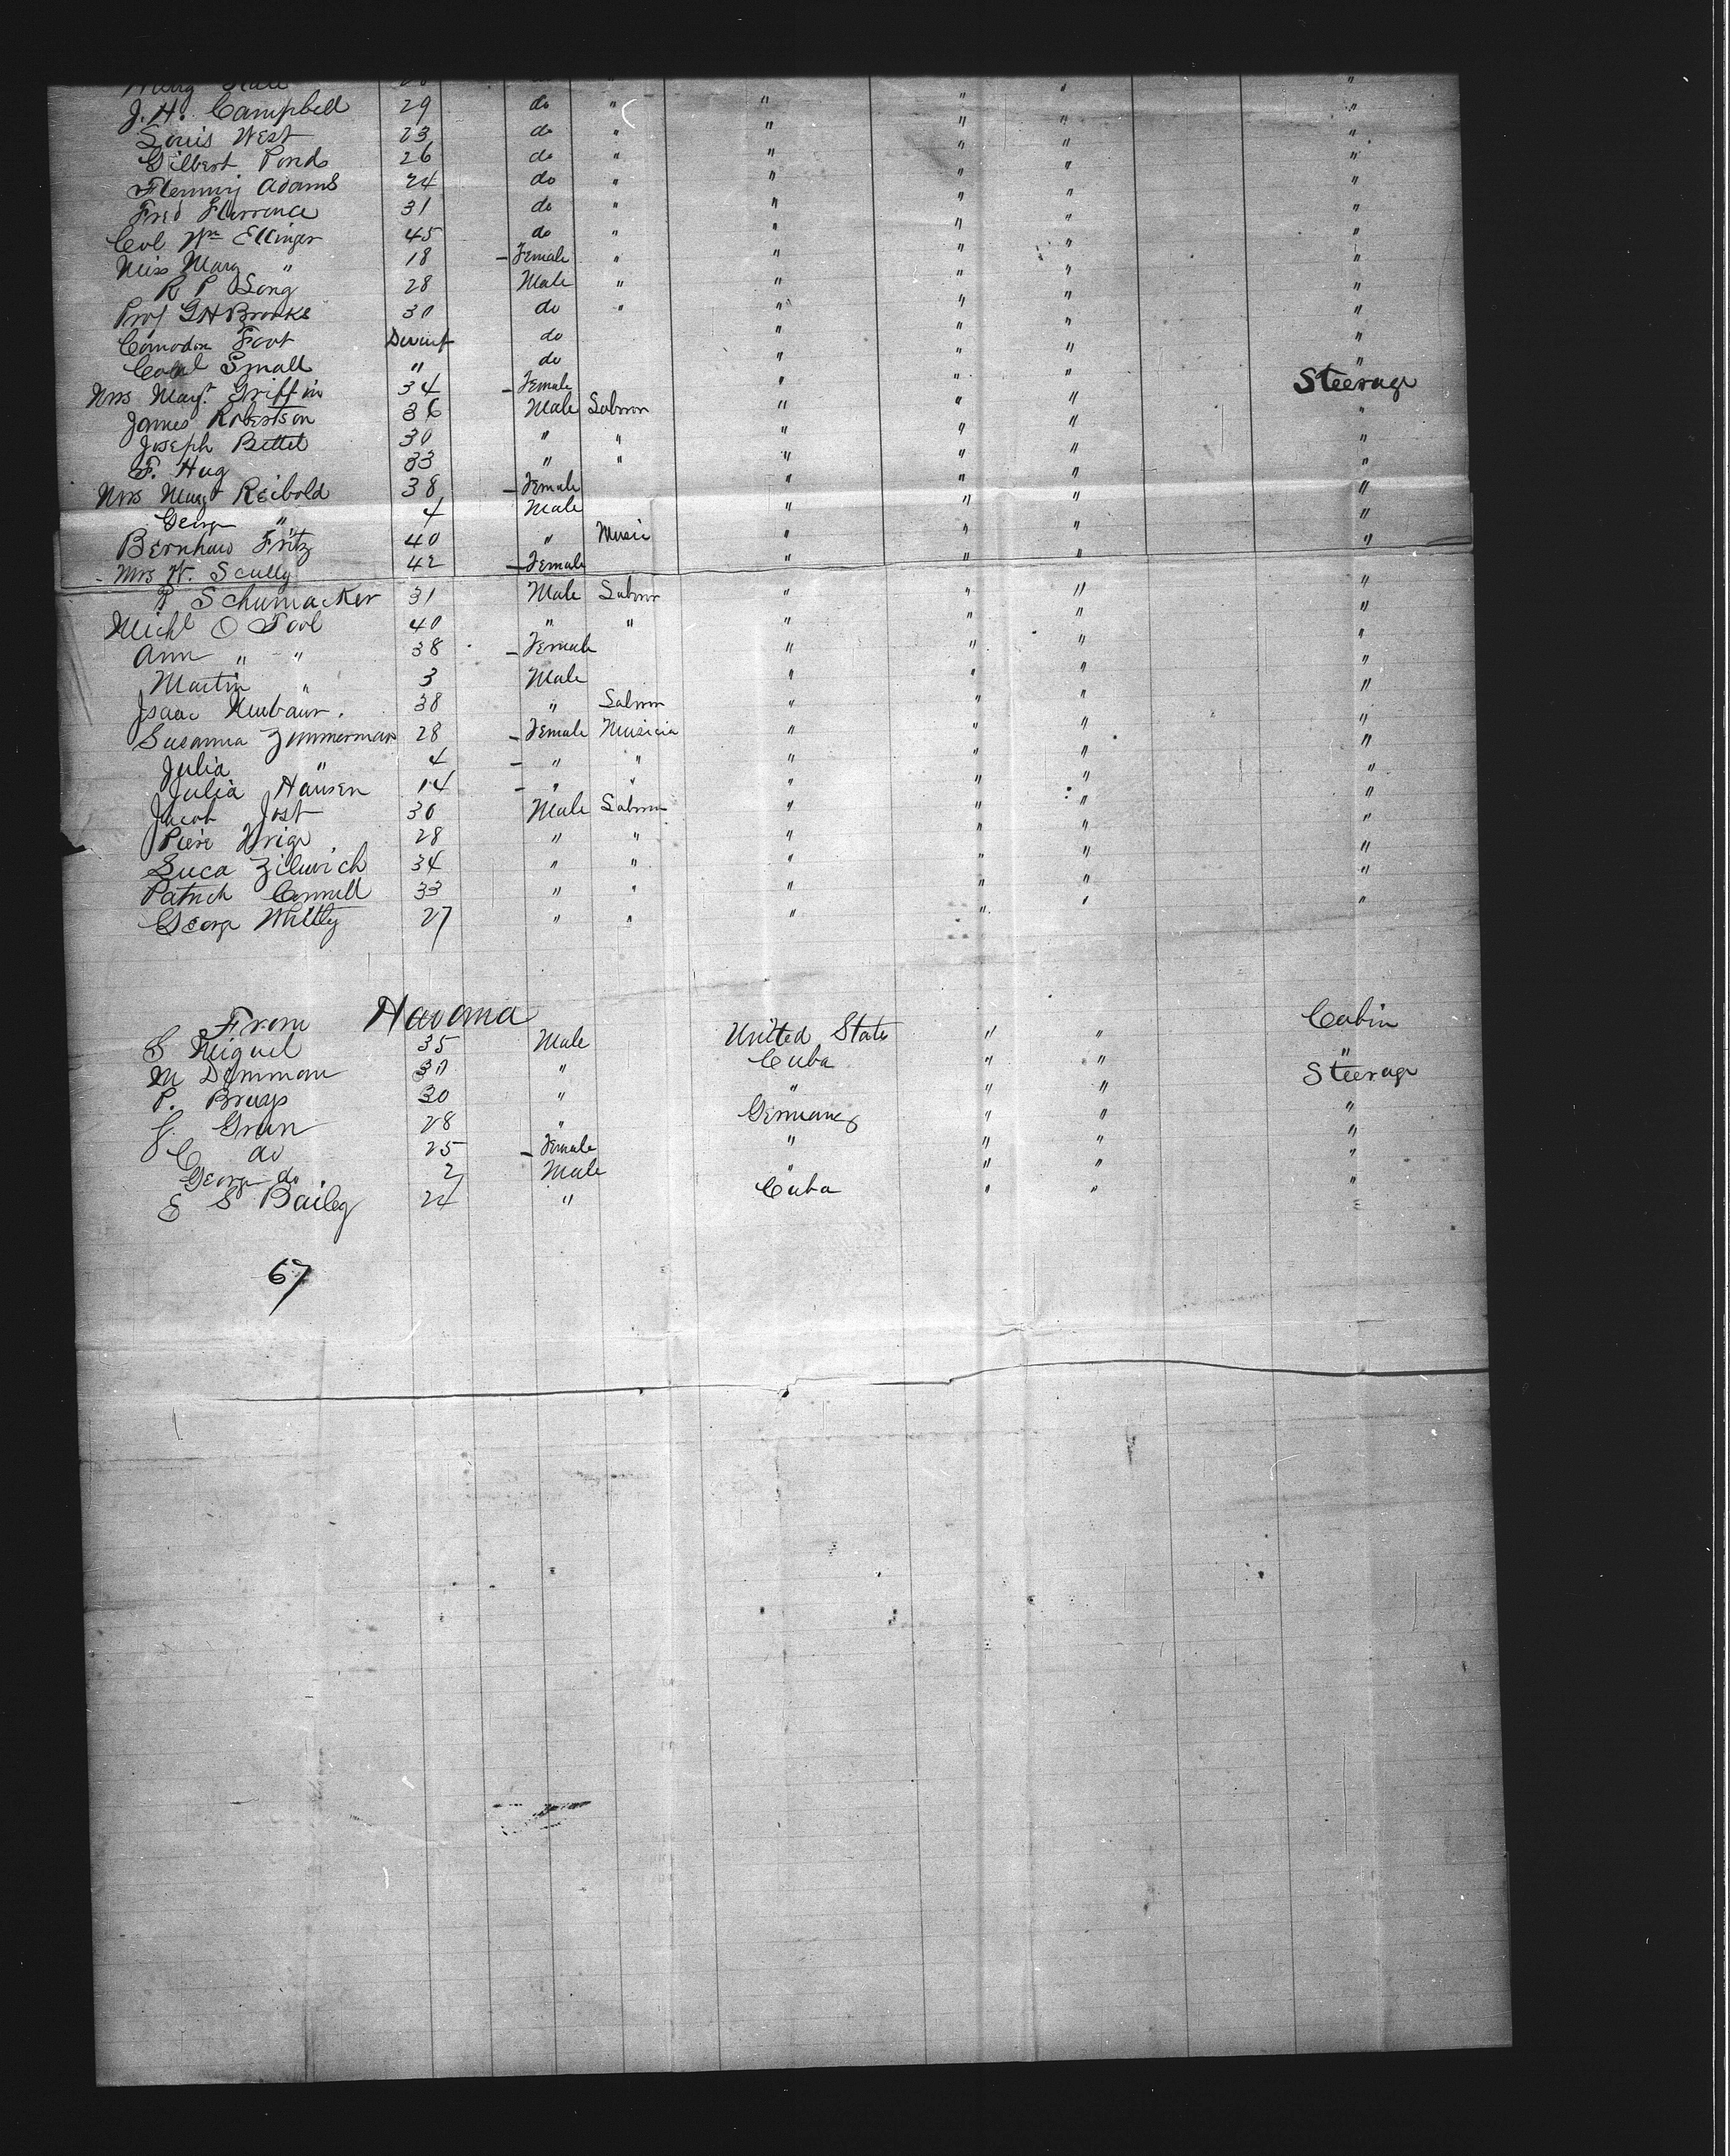 J. H. Campbell 29 do " " " " "
Louis West 23 do " " " " "
Gilbert Pond 26 do " " " " "
Flemmig Adams 24 do " " " " "
Fred Florrence 31 do " " " " "
Col Wm Ellinger 45 do " " " " "
Miss Mary " 18 - Female " " " " "
R P Long 28 Male " " " " "
Prof G H Brooks 30 do " " " " "
Comodore Foot Dwarf do " " " "
Small " do " " " "
Mrs Margt Griffin 34 - Female " " " Steerage
James Robertson 36 Male Labour " " " "
Joseph Bettel 30 " " " " " "
F. Hug 33 " " " " " "
Mrs Margt Reibold 38 - Female " " " "
George " 4 Male " " " "
Bernhard Fritz 40 " Music " " " "
- Mrs W. Scully 42 - Female " " " "
P Schumacker 31 Male Labour " " " "
Michl O Tool 40 " " " " " "
Ann " " 38 - Female " " " "
Martin " 3 Male " " " "
Isaac Neubaur. 38 " Labour " " " "
Susanna Zimmerman 28 - Female Musicia " " " "
Julia " 4 - " " " " " "
Julia Hansen 14 - " " " " " "
Jacob Jost 30 Male Labour " " " "
Piere 28 " " " " " "
Luca Zilovich 34 " " " " " "
Patrick Connell 33 " " " " " "
George Wittly 27 " " " " "
From Havana
S Miguel 35 Male United State " " Cabin
M 30 " Cuba " " "
P. Bruys 30 " " " " Steerage
J. Grun 28 " Germany " " "
C do 25 - Female " " " "
George do. 2 Male " " " "
E S Bailey 24 " Cuba " " "
67